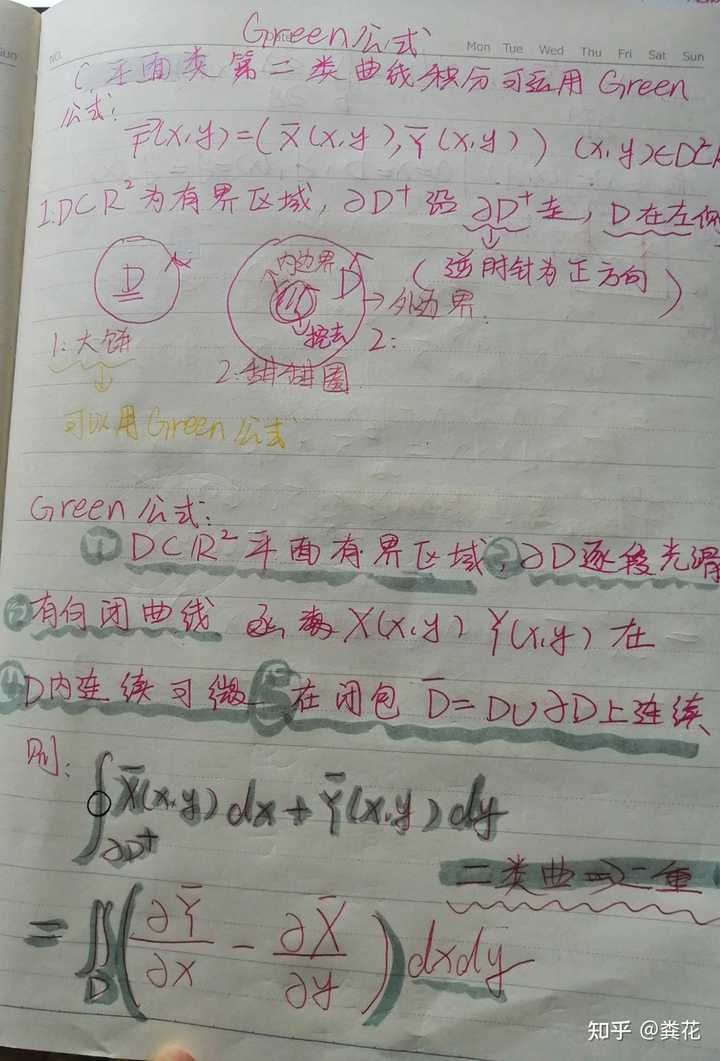 Green公式
NO.
Mon Tue Wed Thu Fri Sat Sun
C.平面类第二类曲线积分可运用Green
公式:
F(x,y)=(X̄(x,y),Ȳ(x,y)) (x,y)∈D⊂R
1.D⊂R²为有界区域,∂D⁺沿∂D⁺走,D在左侧
(逆时针为正方向)
D
内边界
D
→外边界
挖去
1:大饼
2:甜甜圈
2:
可以用Green公式
Green公式:
①D⊂R²平面有界区域,②∂D逐段光滑
③有向闭曲线 函数X(x,y) Y(x,y)在
④D内连续可微 ⑤在闭包 D̄=D∪∂D上连续
则:
∮∂D⁺ X̄(x,y)dx+Ȳ(x,y)dy
二类曲⇒二重
=∬D(∂Ȳ/∂x-∂X̄/∂y)dxdy
知乎 @粪花